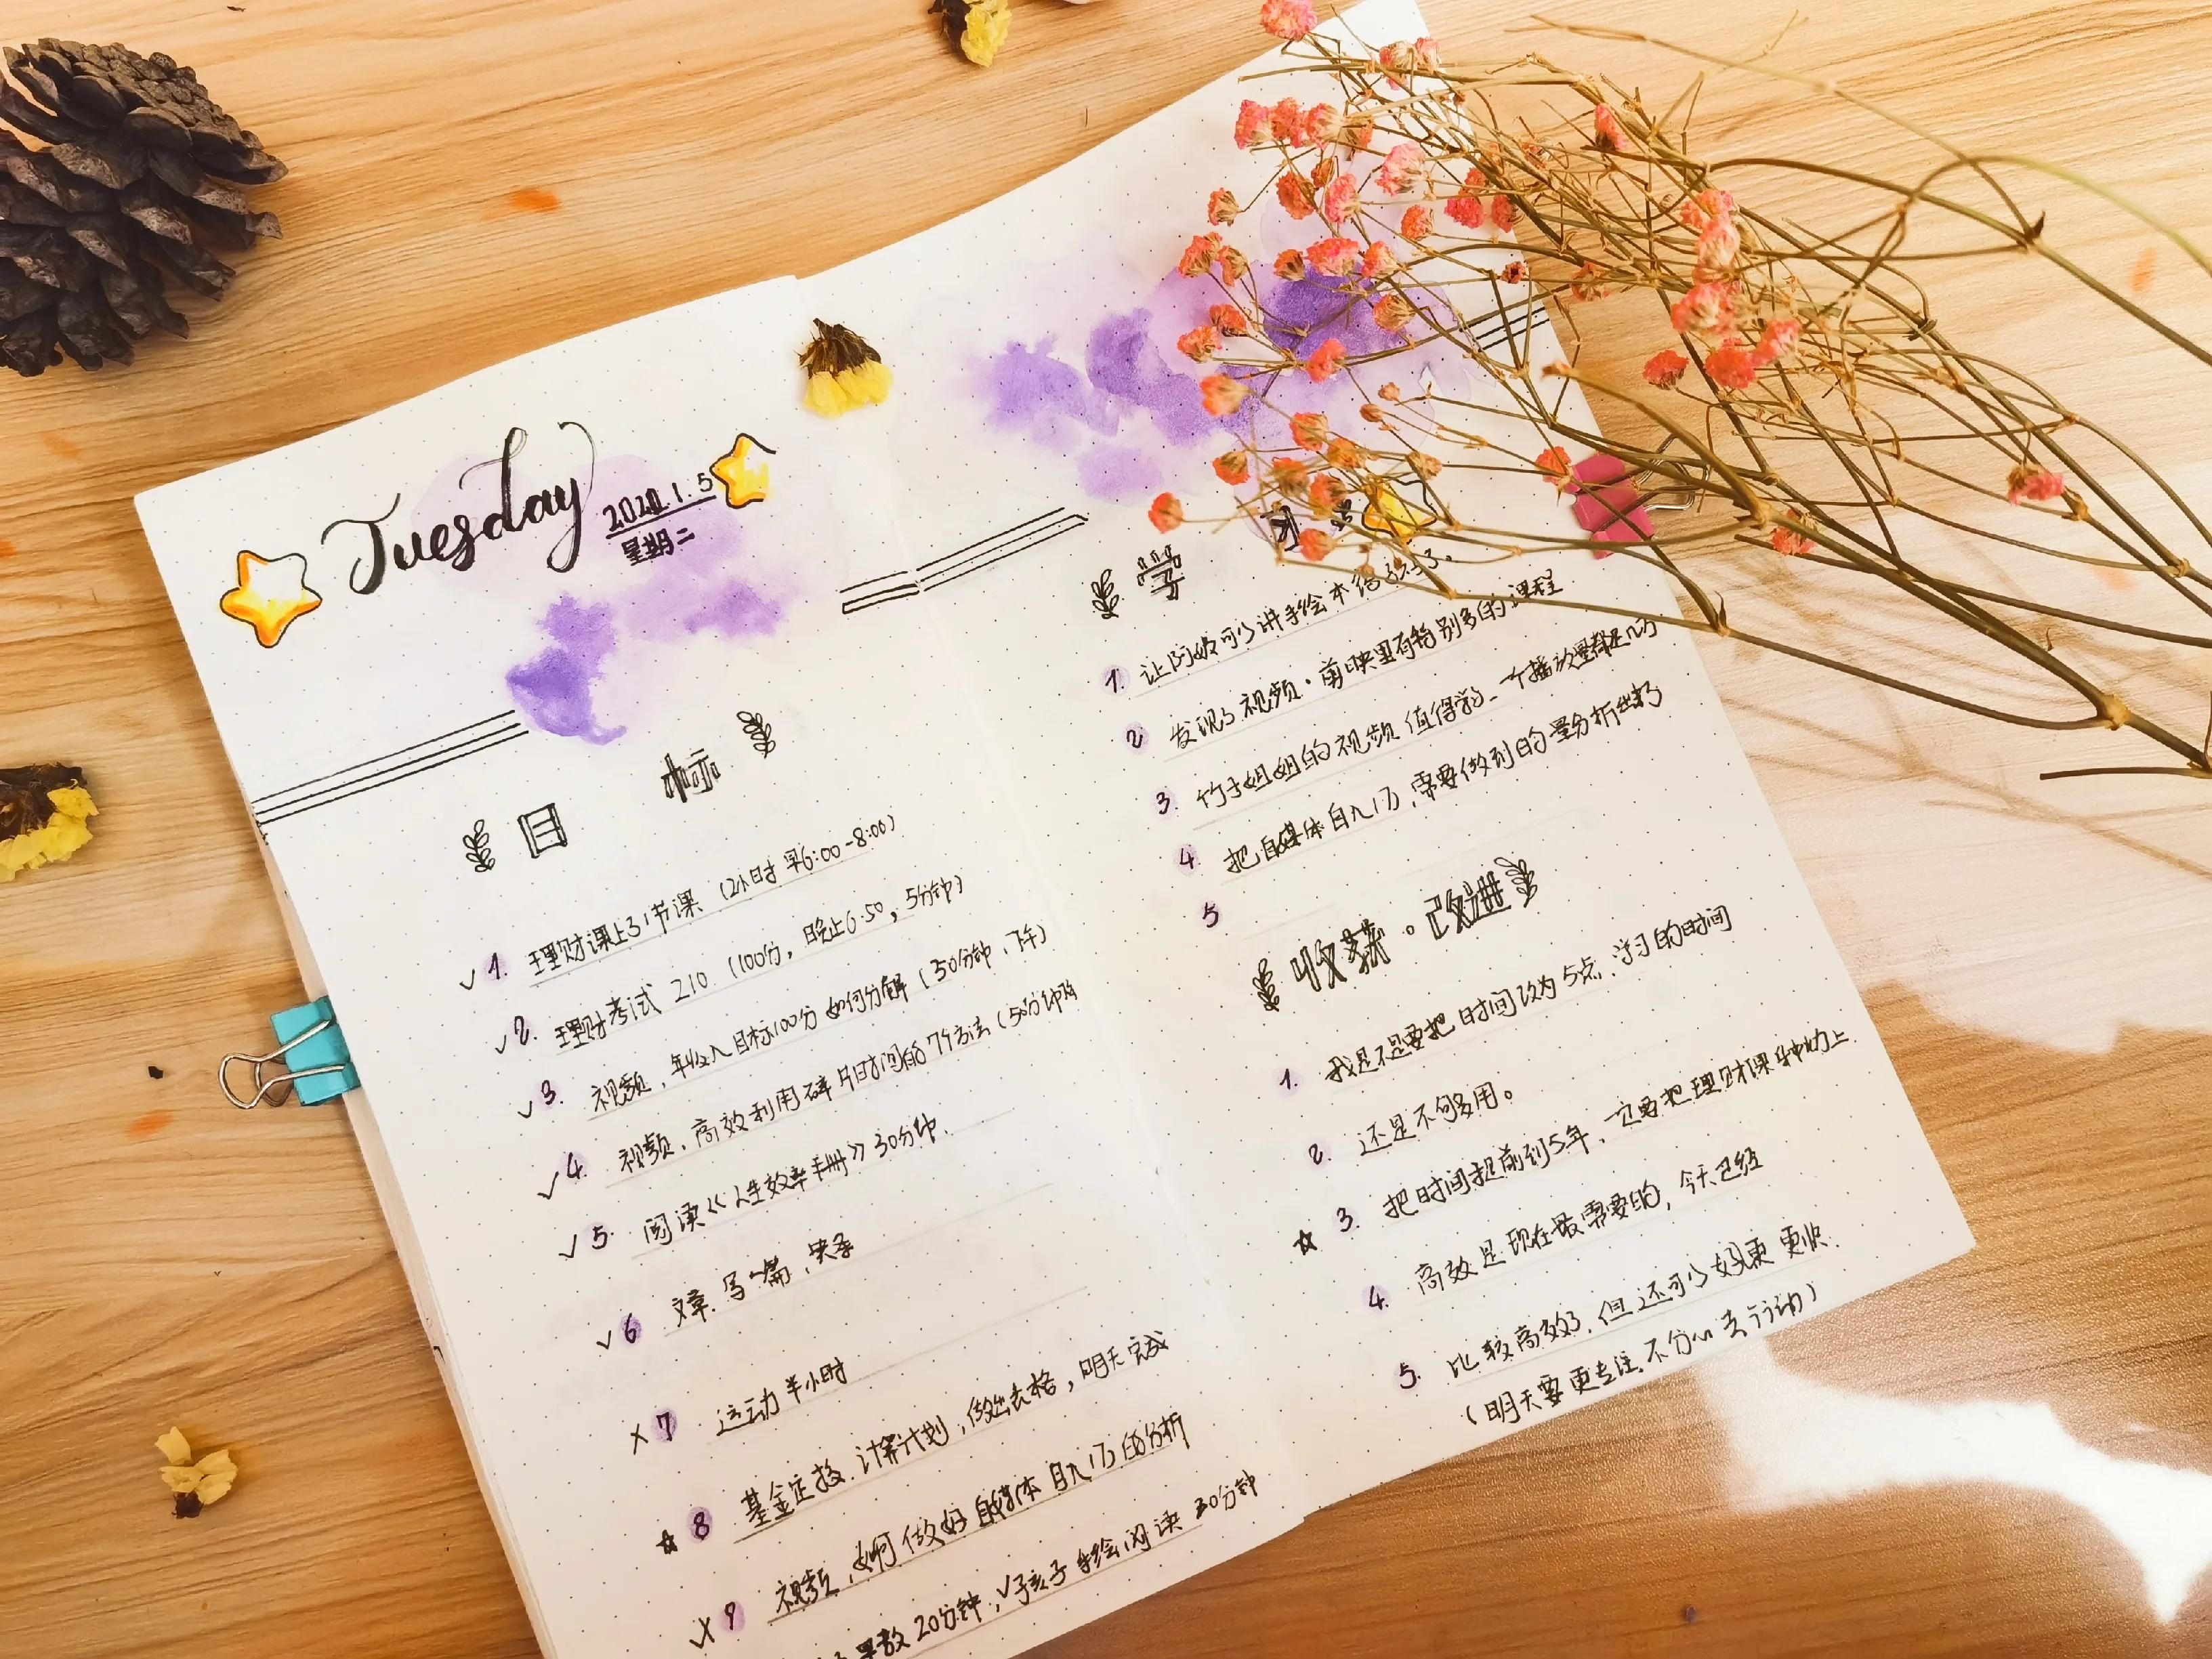 Tuesday
2021.1.5
星期二
目 标
1. 理财课上31节课 (2小时 早6:00-8:00)
2. 理财考试 210. (100分, 晚上6:50, 5分钟)
3. 视频, 年收入目标100分 如何分解 (30分钟, 下午)
4. 视频, 高效利用碎片时间的7个方法 (50分钟
5. 阅读《人生效率手册》30分钟.
6 文章, 写一篇,
7 运动半小时
8 基金定投, 计算计划, 做出表格, 明天完成
9 视频, 如何做好自媒体 月入1万的分析
数20分钟, 孩子手绘阅读 30分钟
学 习
1. 让阿 可少讲手绘本给
2 发现了视频·剪映里有特别多的课程
3. 竹子姐姐的视频值得学习, 一个播放量都是几万
4 把自媒体月入1万, 需要做到的量分析出来了
5
收获·改进
1. 我是不是要把时间改为5点, 学习的时间
2. 还是不够多用。
3. 把时间提前到5年, 一定要把理财课 上
4. 高效是现在最需要的, 今天已经
5. 比较高效了, 但还可少好更更快.
(明天要更专注, 不分心去行动)